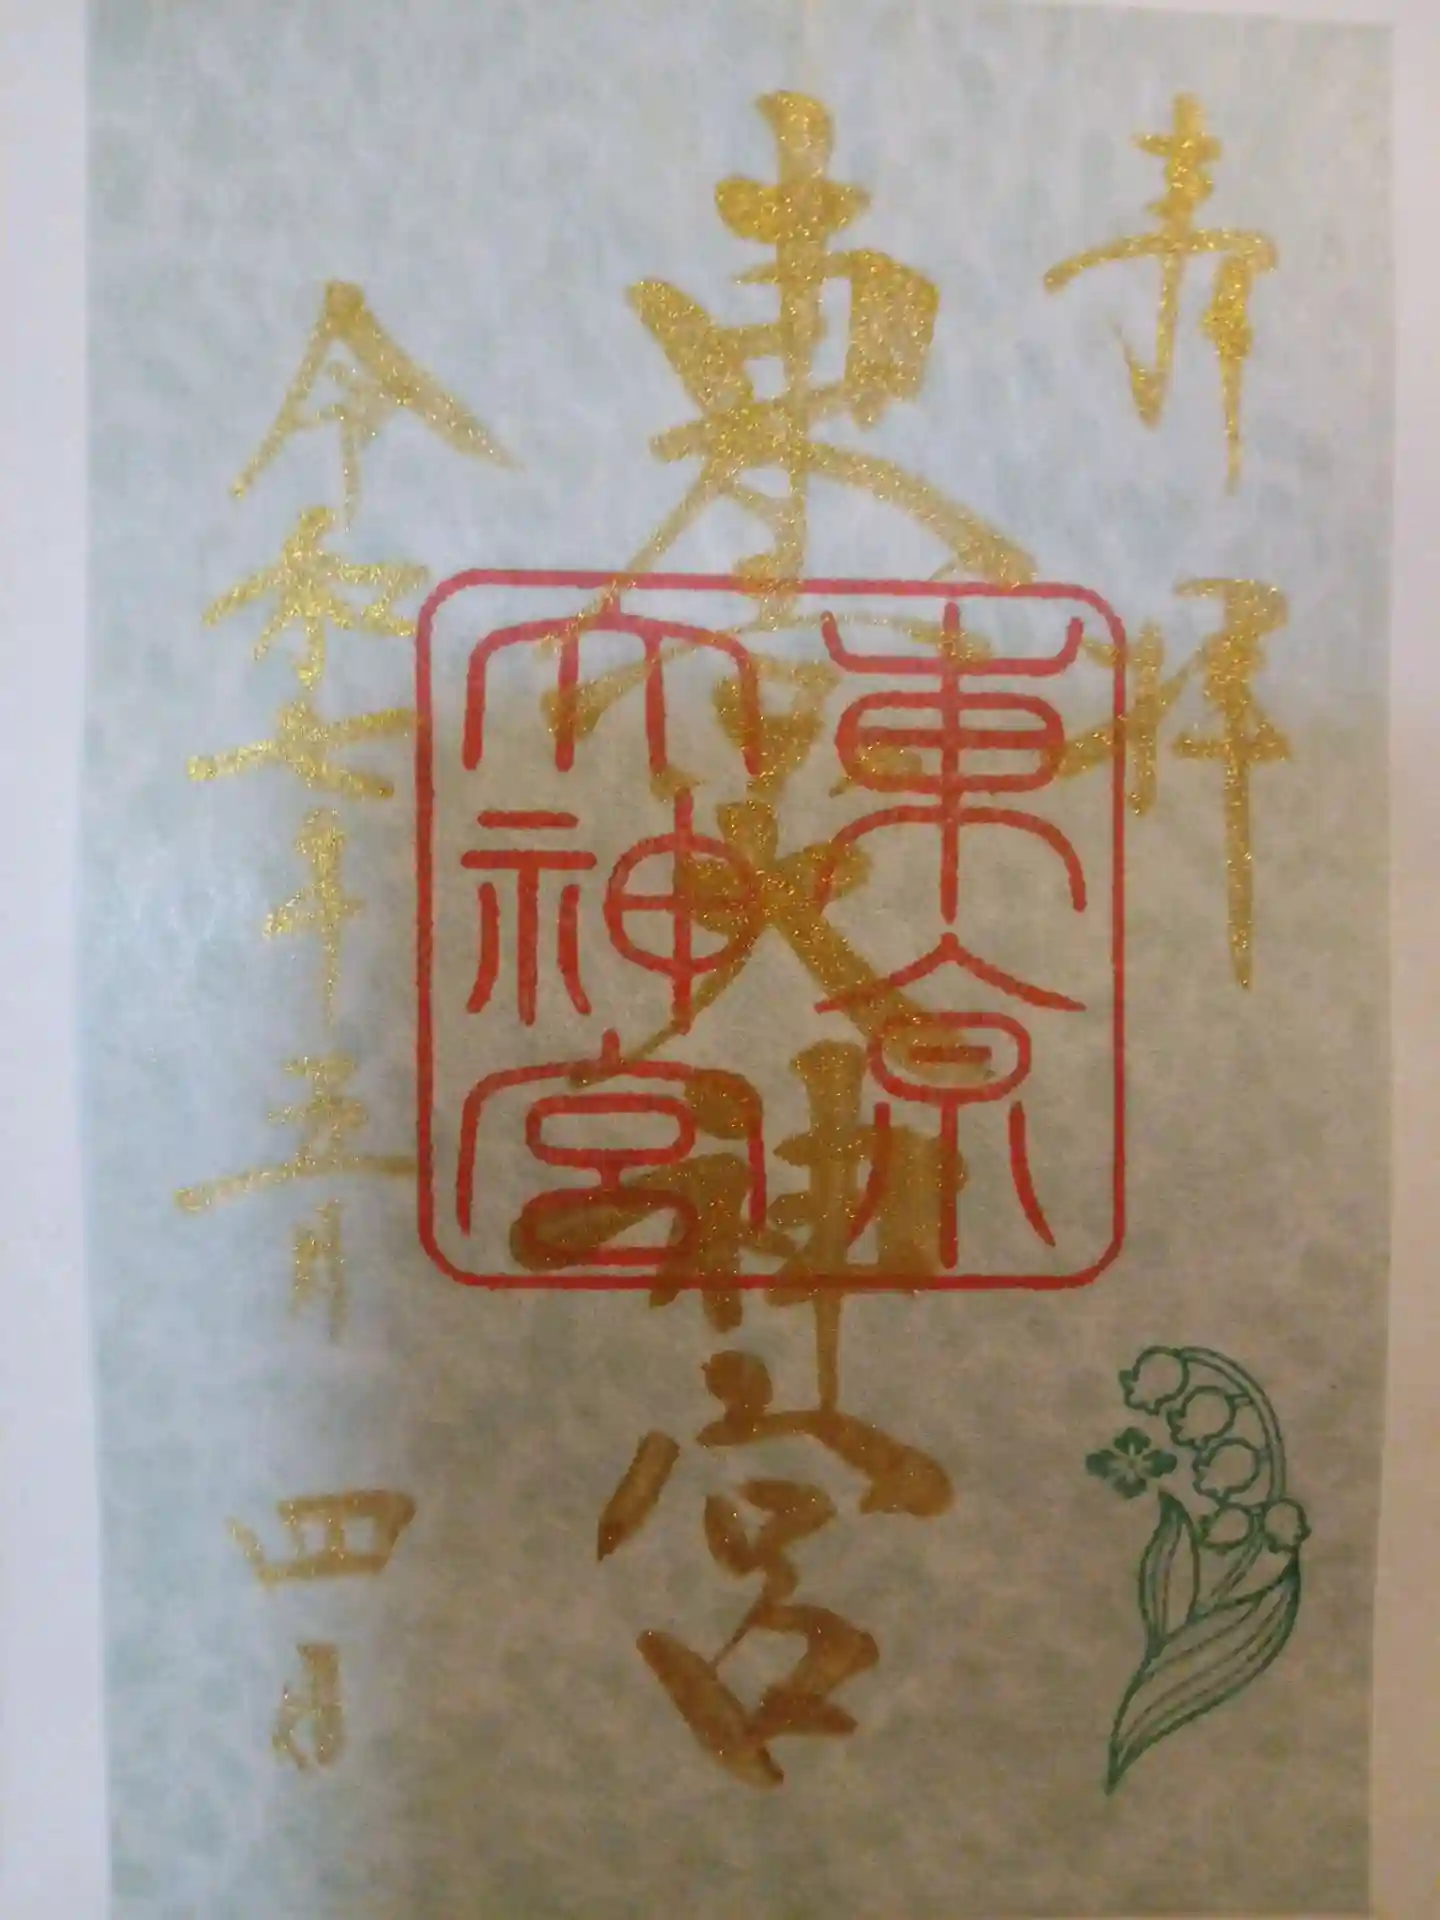 奉拝
東京大神宮
東京
大神宮
令和七年五月四日